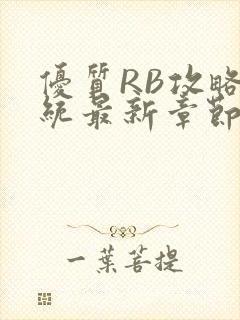 優質RB攻略
統最新章節
一葉菩提